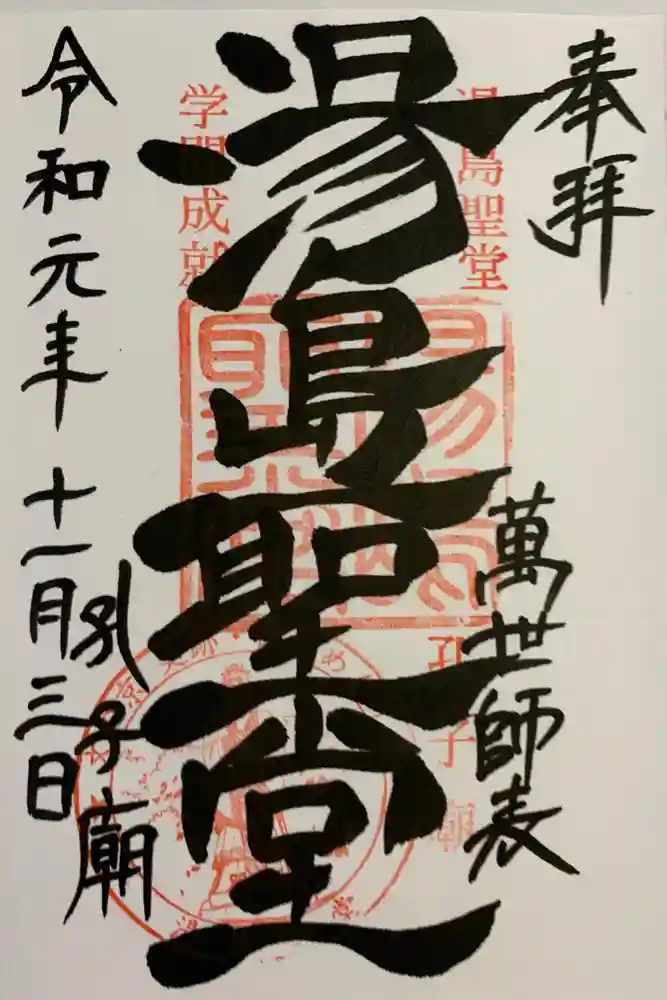 奉拝
萬世師表
湯島聖堂
湯島聖堂
孔子廟
学問成就
孔子廟
令和元年 十一月三日